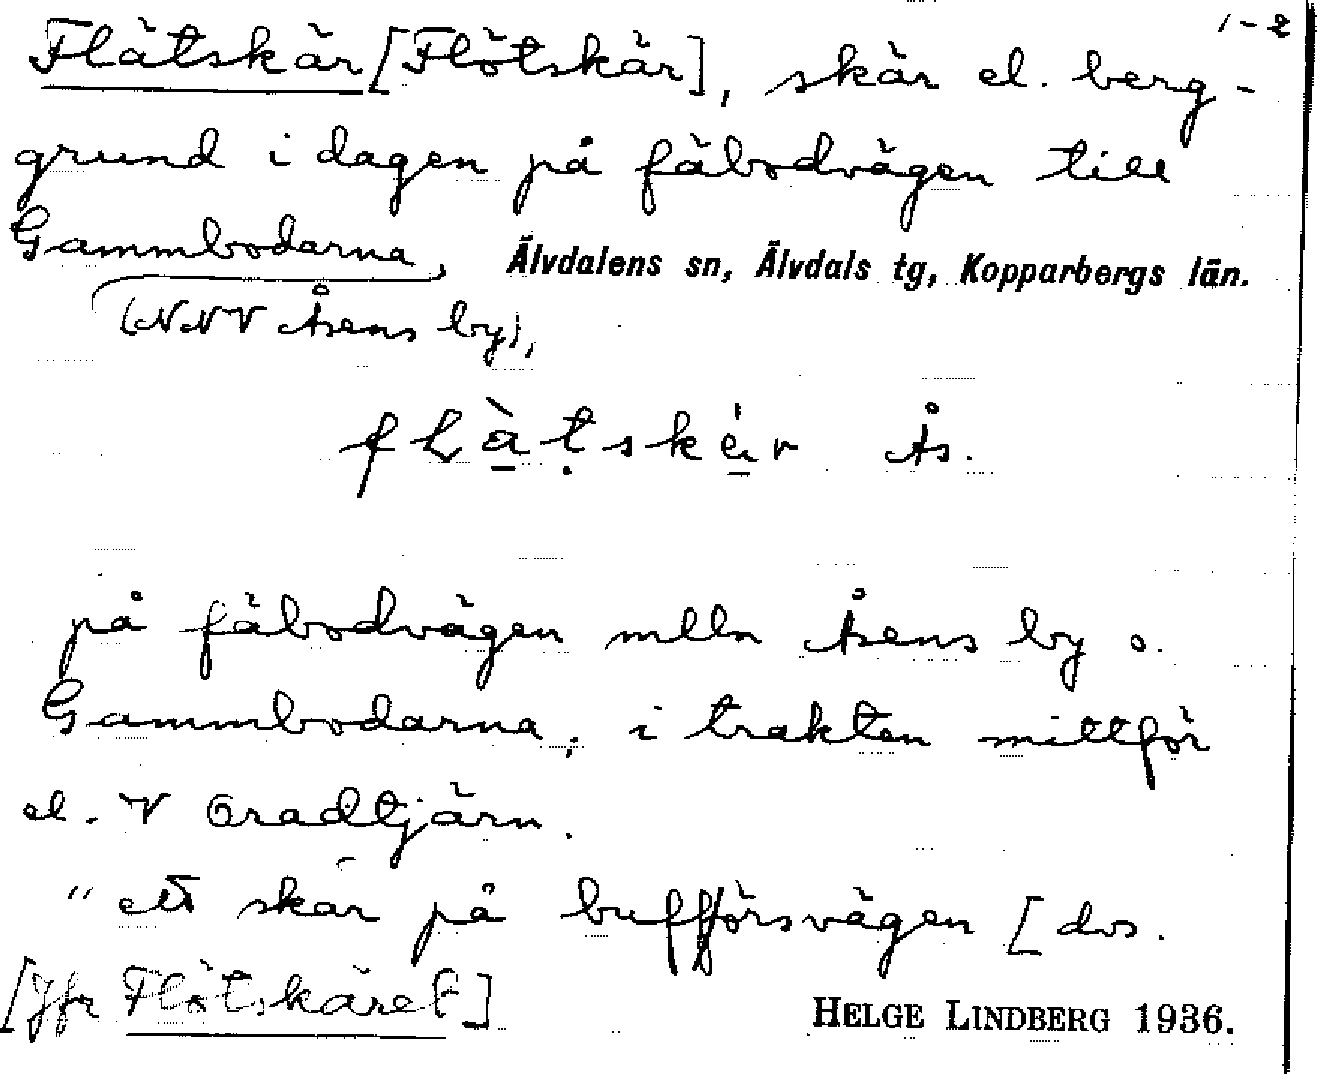 1-2
Flätskär [Flötskär], skär el. berg-
grund i dagen på fäbodvägen till
Gammbodarna, Älvdalens sn, Älvdals tg, Kopparbergs län.
(NNV Åsens by),
flàt̩skér Ås.
på fäbodvägen mlln Åsens by o.
Gammbodarna, i trakten mittför
el. V Oradtjärn.
"ett skär på bufförsvägen [dvs.
[Jfr Flötskäret]
HELGE LINDBERG 1936.